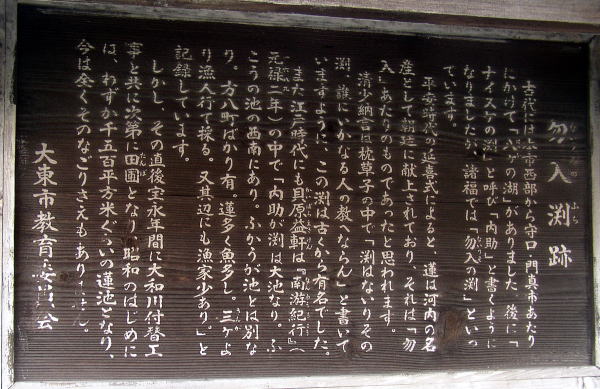 勿入渕跡
古代には本市西部から守口・門真市あたり
にかけて「八ケの湖」がありました。後に「
ナイスケの渕」と呼び「内助」と書くように
なりましたが、諸福では「勿入の渕」といっ
ています。
平安時代の延喜式によると、蓮は河内の名
産として朝廷に献上されており、それは「勿
入」あたりのものであったと思われます。
清少納言は枕草子の中で「渕はないりその
渕、誰にいかなる人の教へならん」と書いて
いますように、この渕は古くから有名でした。
また江戸時代にも貝原益軒は『南游紀行』（
元禄二年）の中で「内助が渕は大池なり。ふ
こうの池の西南にあり。ふかうが池とは別な
り、方八町ばかり有、蓮多く魚多し。三ケよ
り漁人行て採る。又其辺にも漁家少あり」と
記録しています。
しかし、その直後宝永年間に大和川付替工
事と共に次第に田園となり、昭和のはじめに
は、わずか千五百平方米ぐらいの蓮池となり、
今は全くそのなごりさえもありません。
大東市教育委員会